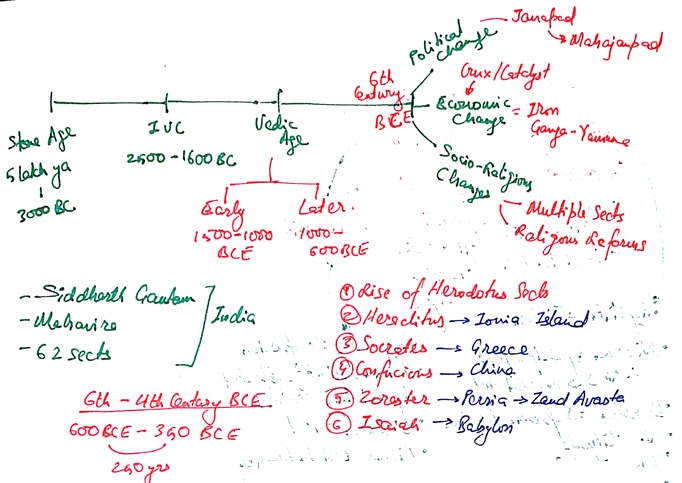 Political Change
Janapad
Mahajanpad
6th Century BCE
Crux/Catalyst
Economic Change = Iron
Ganga-Yamuna
Socio-Religious Changes
Multiple Sects
Religious Reforms
Stone Age
5 lakh ya
3000 BC
IVC
2500-1600 BC
Vedic Age
Early
1500-1000 BCE
Later
1000-600 BCE
- Siddharth Gautam
- Mahavira
- 62 sects
India
6th - 4th Century BCE
600 BCE - 350 BCE
250 yrs
① Rise of Herodotus Sects
② Hereclitus → Ionia Island
③ Socrates → Greece
④ Confucious → China
⑤ Zorester → Persia → Zend Avasta
⑥ Isaiah → Babylon